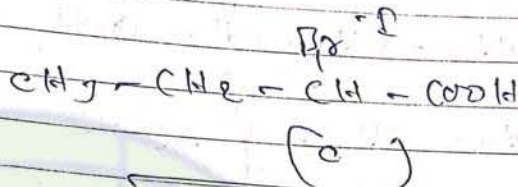 Br -I
CH3 - CH2 - CH - COOH
(c)